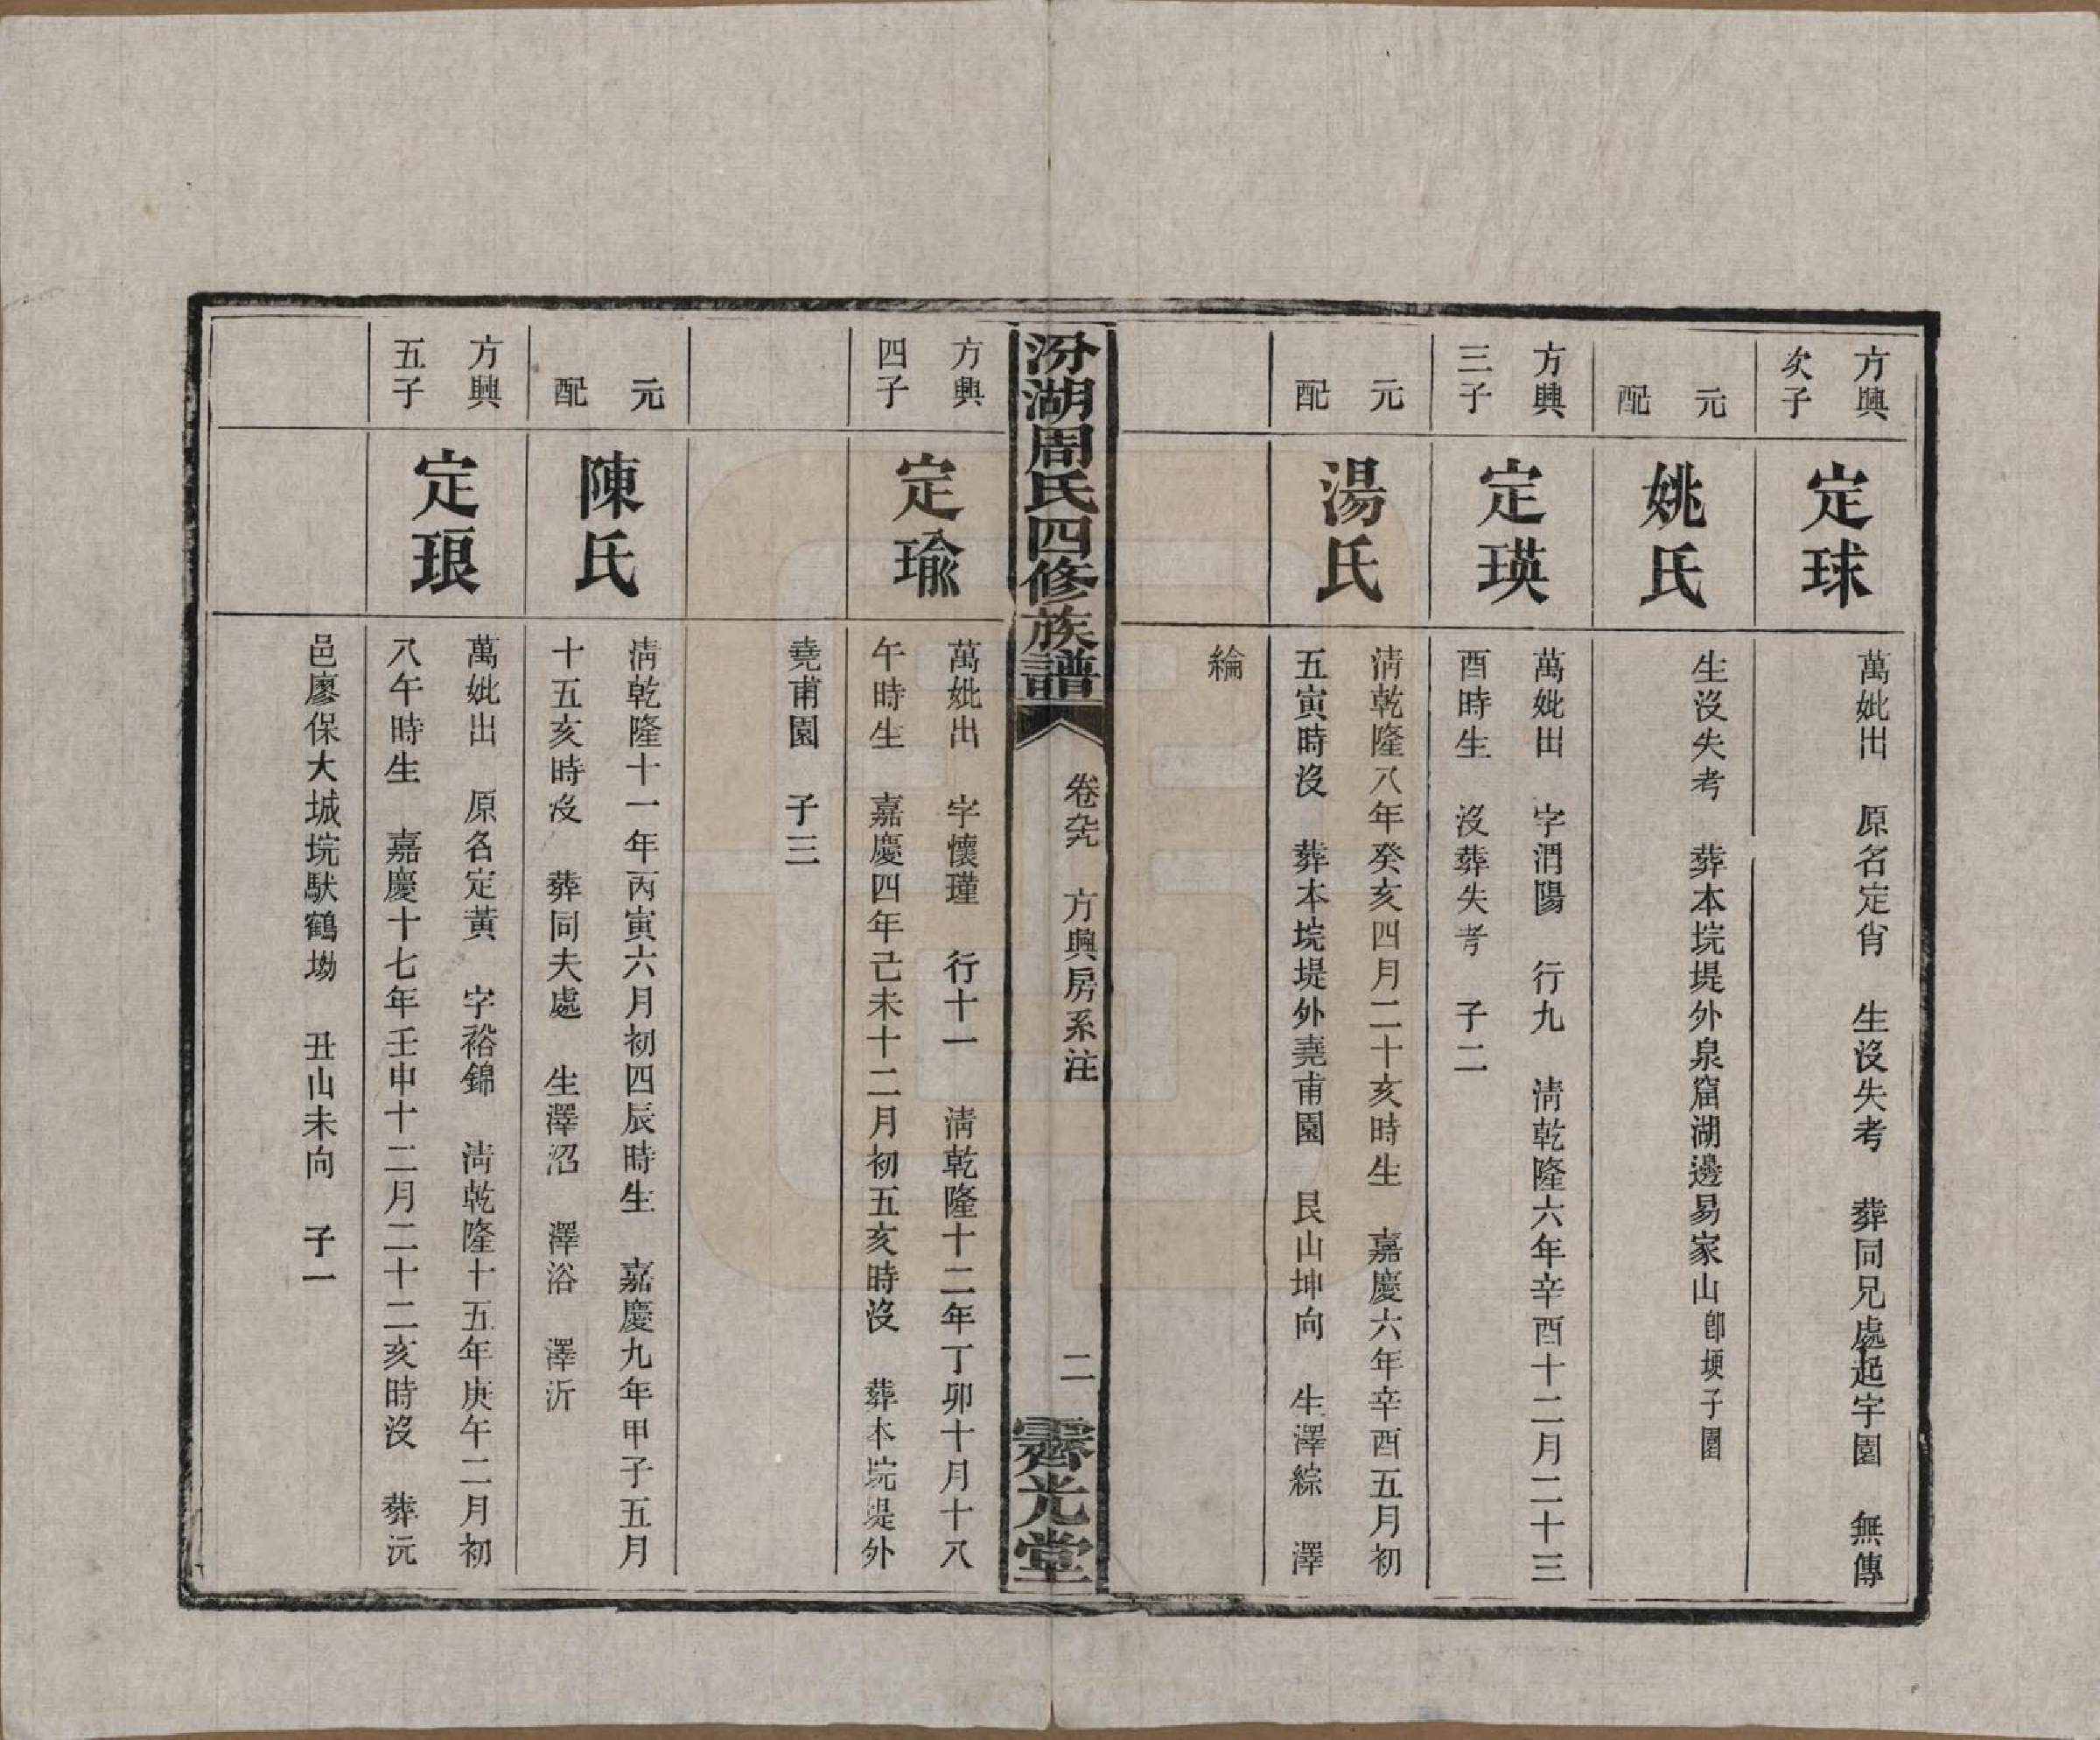 方興
次子
定球
萬妣出　原名定肯　生沒失考　葬同兄處起宇園　無傳
元
配
姚氏
生沒失考　葬本垸堤外泉窟湖邊易家山卽埂子園
方興
三子
定瑛
萬妣出　字渭陽　行九　淸乾隆六年辛酉十二月二十三
酉時生　沒葬失考　子二
元
配
湯氏
淸乾隆八年癸亥四月二十亥時生　嘉慶六年辛酉五月初
五寅時沒　葬本垸堤外堯甫園　艮山坤向　生澤綜　澤
綸
汾湖周氏四修族譜
卷　方興房系注
二
霽光堂
方興
四子
定瑜
萬妣出　字懷瑾　行十一　淸乾隆十二年丁卯十月十八
午時生　嘉慶四年己未十二月初五亥時沒　葬本垸堤外
堯甫園　子三
元
配
陳氏
淸乾隆十一年丙寅六月初四辰時生　嘉慶九年甲子五月
十五亥時沒　葬同夫處　生澤沼　澤浴　澤沂
方興
五子
定琅
萬妣出　原名定黃　字裕錦　淸乾隆十五年庚午二月初
八午時生　嘉慶十七年壬申十二月二十二亥時沒　葬沅
邑廖保大城垸馱鶴坳　丑山未向　子一